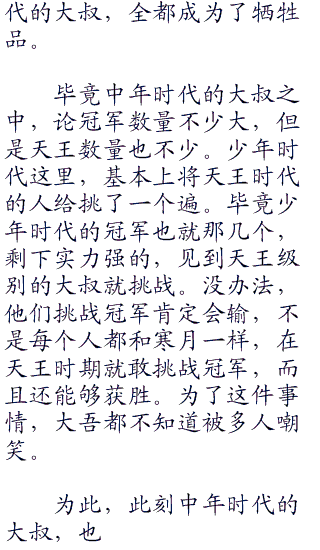 代的大叔，全都成为了牺牲
品。
毕竟中年时代的大叔之
中，论冠军数量不少大，但
是天王数量也不少。少年时
代这里，基本上将天王时代
的人给挑了一个遍。毕竟少
年时代的冠军也就那几个，
剩下实力强的，见到天王级
别的大叔就挑战。没办法，
他们挑战冠军肯定会输，不
是每个人都和寒月一样，在
天王时期就敢挑战冠军，而
且还能够获胜。为了这件事
情，大吾都不知道被多人嘲
笑。
为此，此刻中年时代的
大叔，也